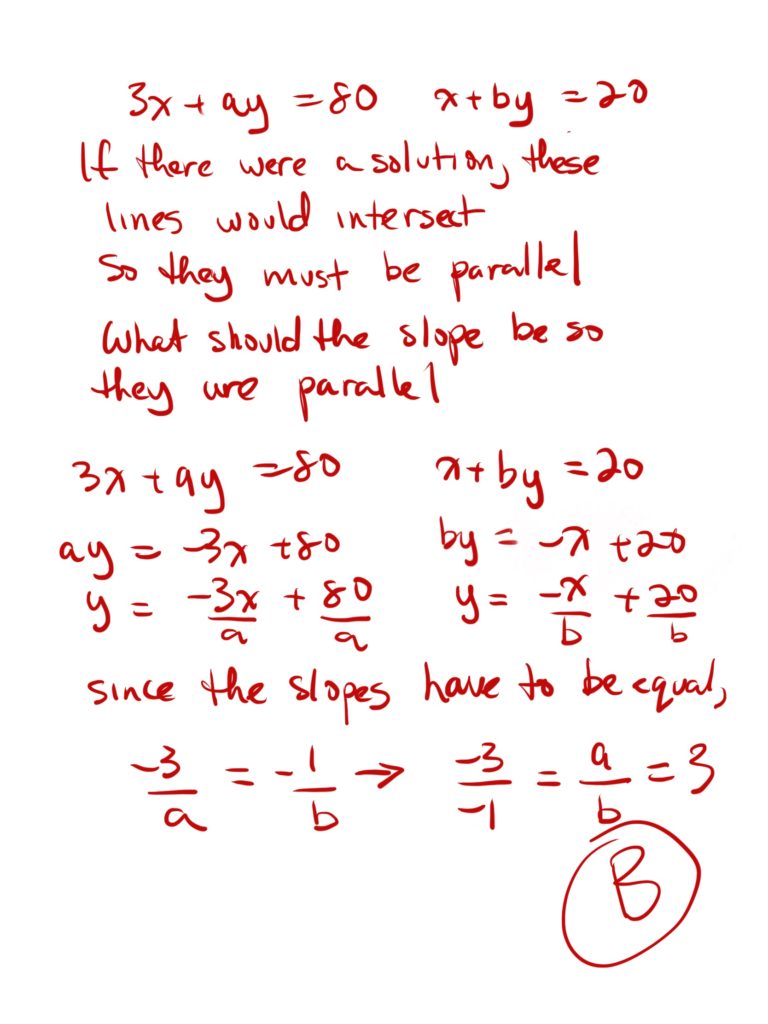 3x + ay = 80   x + by = 20
If there were a solution, these
lines would intersect
So they must be parallel
What should the slope be so
they are parallel
3x + ay = 80   x + by = 20
ay = -3x + 80   by = -x + 20
y = -3x/a + 80/a   y = -x/b + 20/b
since the slopes have to be equal,
-3/a = -1/b → -3/-1 = a/b = 3
B